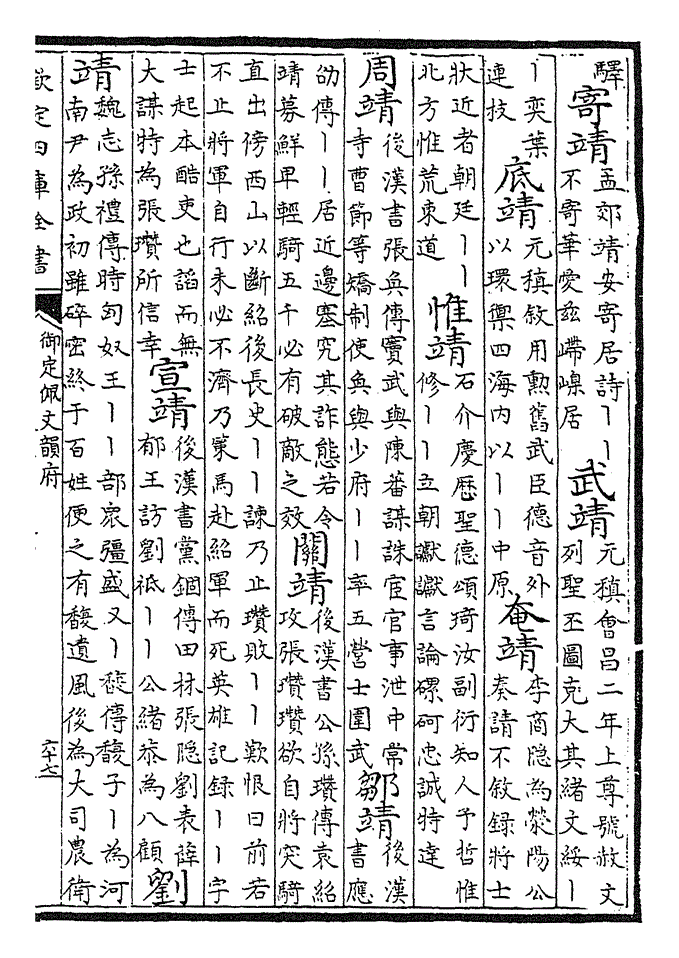 驛
寄靖 孟郊靖安寄居詩丨丨
不寄華愛茲嵽嵲居
武靖 元稹會昌二年上尊號赦文
列聖丕圖克大其緒文綏丨
丨奕葉
連技
底靖 元稹敘用勲舊武臣德音外
以環禦四海内以丨丨中原
奄靖 李商隠為滎陽公
奏請不敘録將士
狀近者朝廷丨丨
北方惟荒東道
惟靖 石介慶歴聖德頌琦汝副衍知人予哲惟
修丨丨立朝讞讞言論磥砢忠誠特達
周靖 後漢書張奐傳竇武與陳蕃謀誅宦官事泄中常
寺曹節等矯制使奐與少府丨丨率五營士圍武
鄒靖 後漢
書應
劭傳丨丨居近邊塞究其詐態若令
靖募鮮卑輕騎五千必有破敵之效
關靖 後漢書公孫瓚傳袁紹
攻張瓚瓚欲自將突騎
直出傍西山以斷紹後長史丨丨諫乃止瓚敗丨丨歎恨曰前若
不止將軍自行未必不濟乃策馬赴紹軍而死英雄記録丨丨字
士起本酷吏也謟而無
大謀特為張瓚所信幸
宣靖 後漢書黨錮傳田林張隠劉表薛
郁王訪劉祗丨丨公緒恭為八顧
劉
靖 魏志孫禮傳時匈奴王丨丨部衆彊盛又丨馥傳馥子丨為河
南尹為政初雖碎密終于百姓便之有馥遺風後為大司農衛
欽定四庫全書
御定佩文韻府
六十七